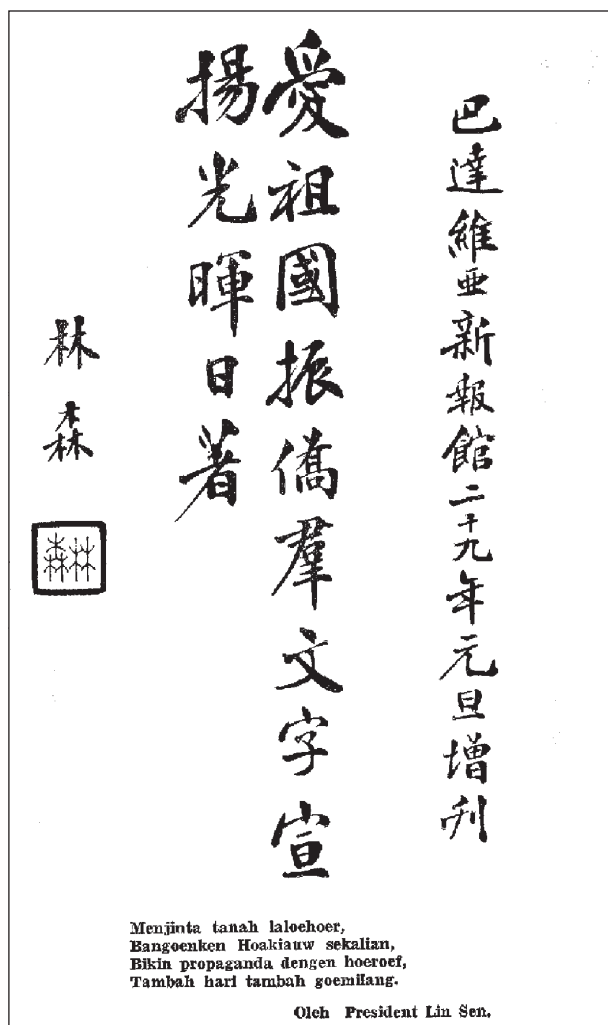 巴達維亜新報館二十九年元旦增刋
愛祖國振僑羣文字宣
揚光暉日著
林森
林森
Menjinta tanah laloehoer,
Bangoenken Hoakiauw sekalian,
Bikin propaganda dengen hoeroef,
Tambah hari tambah goemilang.
Oleh President Lin Sen.